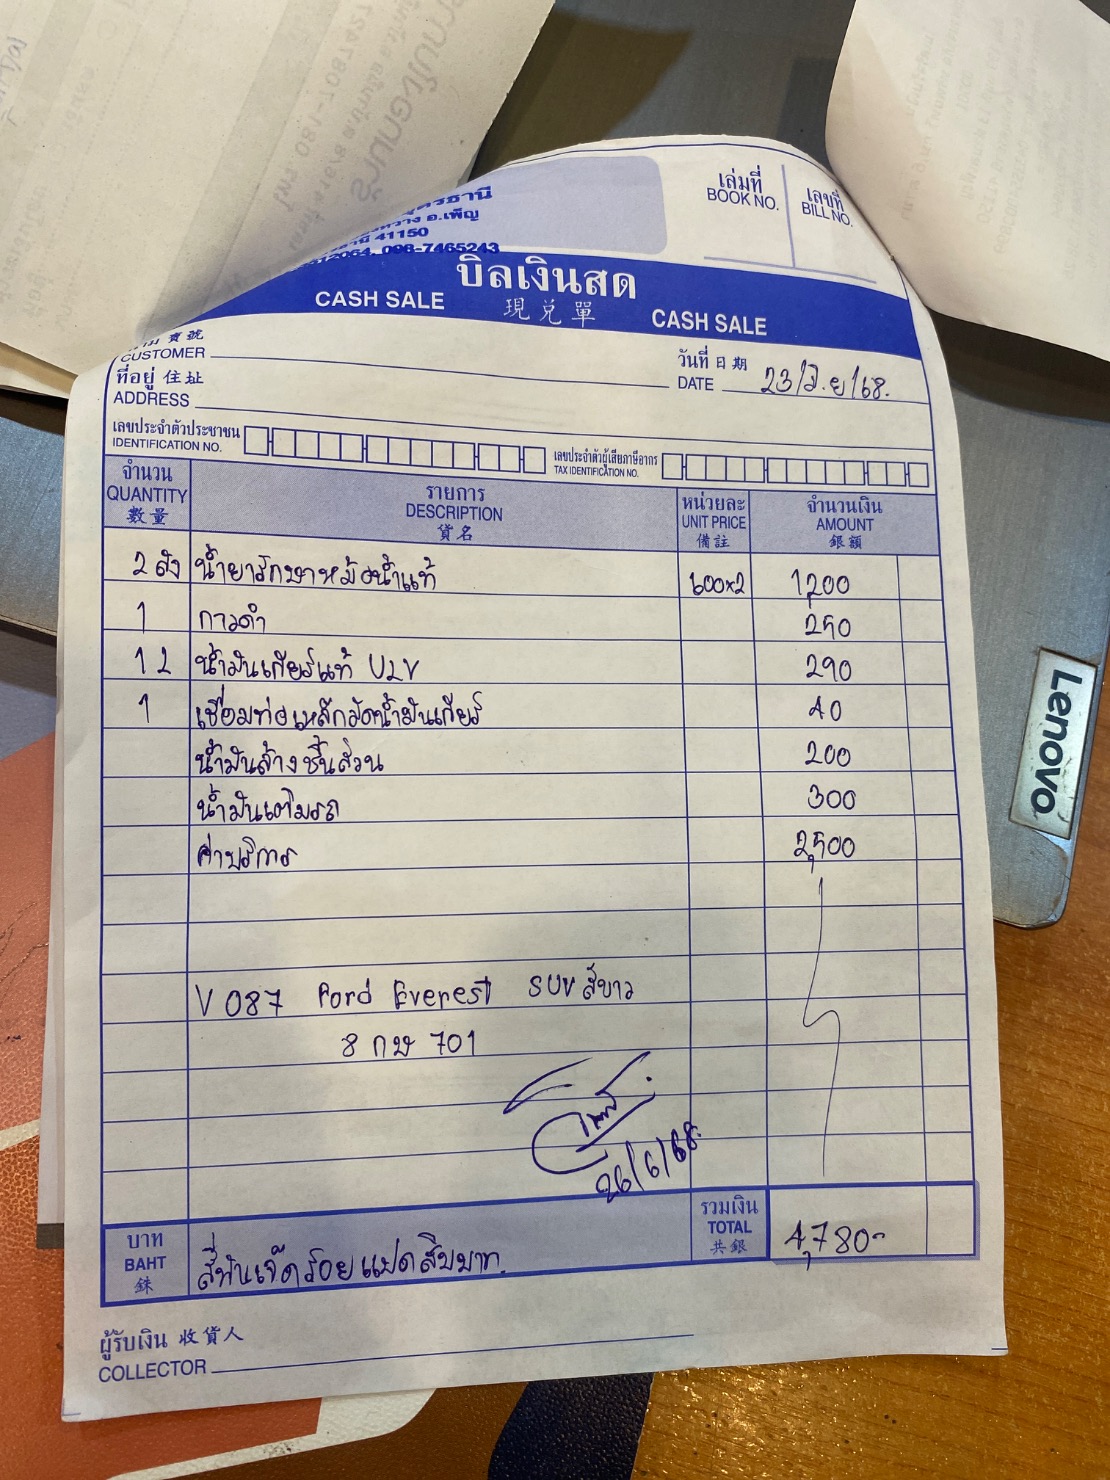 อุดรธานี
อ.เพ็ญ
41150
098-7465243
เล่มที่
BOOK NO.
เลขที่
BILL NO.
บิลเงินสด
CASH SALE 現兌單 CASH SALE
寶號
CUSTOMER
วันที่ 日期
DATE 23/มิ.ย/68.
ที่อยู่ 住址
ADDRESS
เลขประจำตัวประชาชน
IDENTIFICATION NO.
เลขประจำตัวผู้เสียภาษีอากร
TAX IDENTIFICATION NO.
จำนวน รายการ หน่วยละ จำนวนเงิน
QUANTITY DESCRIPTION UNIT PRICE AMOUNT
數量 貨名 備註 銀額
2 ถัง น้ำยารักษาหม้อน้ำแท้ 600x2 1,200
1 กาวดำ 250
1 L น้ำมันเกียร์แท้ ULV 290
1 เชื่อมท่อเหล็กวัดน้ำมันเกียร์ 40
น้ำมันล้างชิ้นส่วน 200
น้ำมันเติมรถ 300
ค่าบริการ 2,500
V 087 Ford Everest SUV สีขาว
8 กษ 701
26/6/68.
บาท
BAHT
銖
สี่พันเจ็ดร้อยแปดสิบบาท.
รวมเงิน
TOTAL
共銀
4,780-
ผู้รับเงิน 收貨人
COLLECTOR
Lenovo